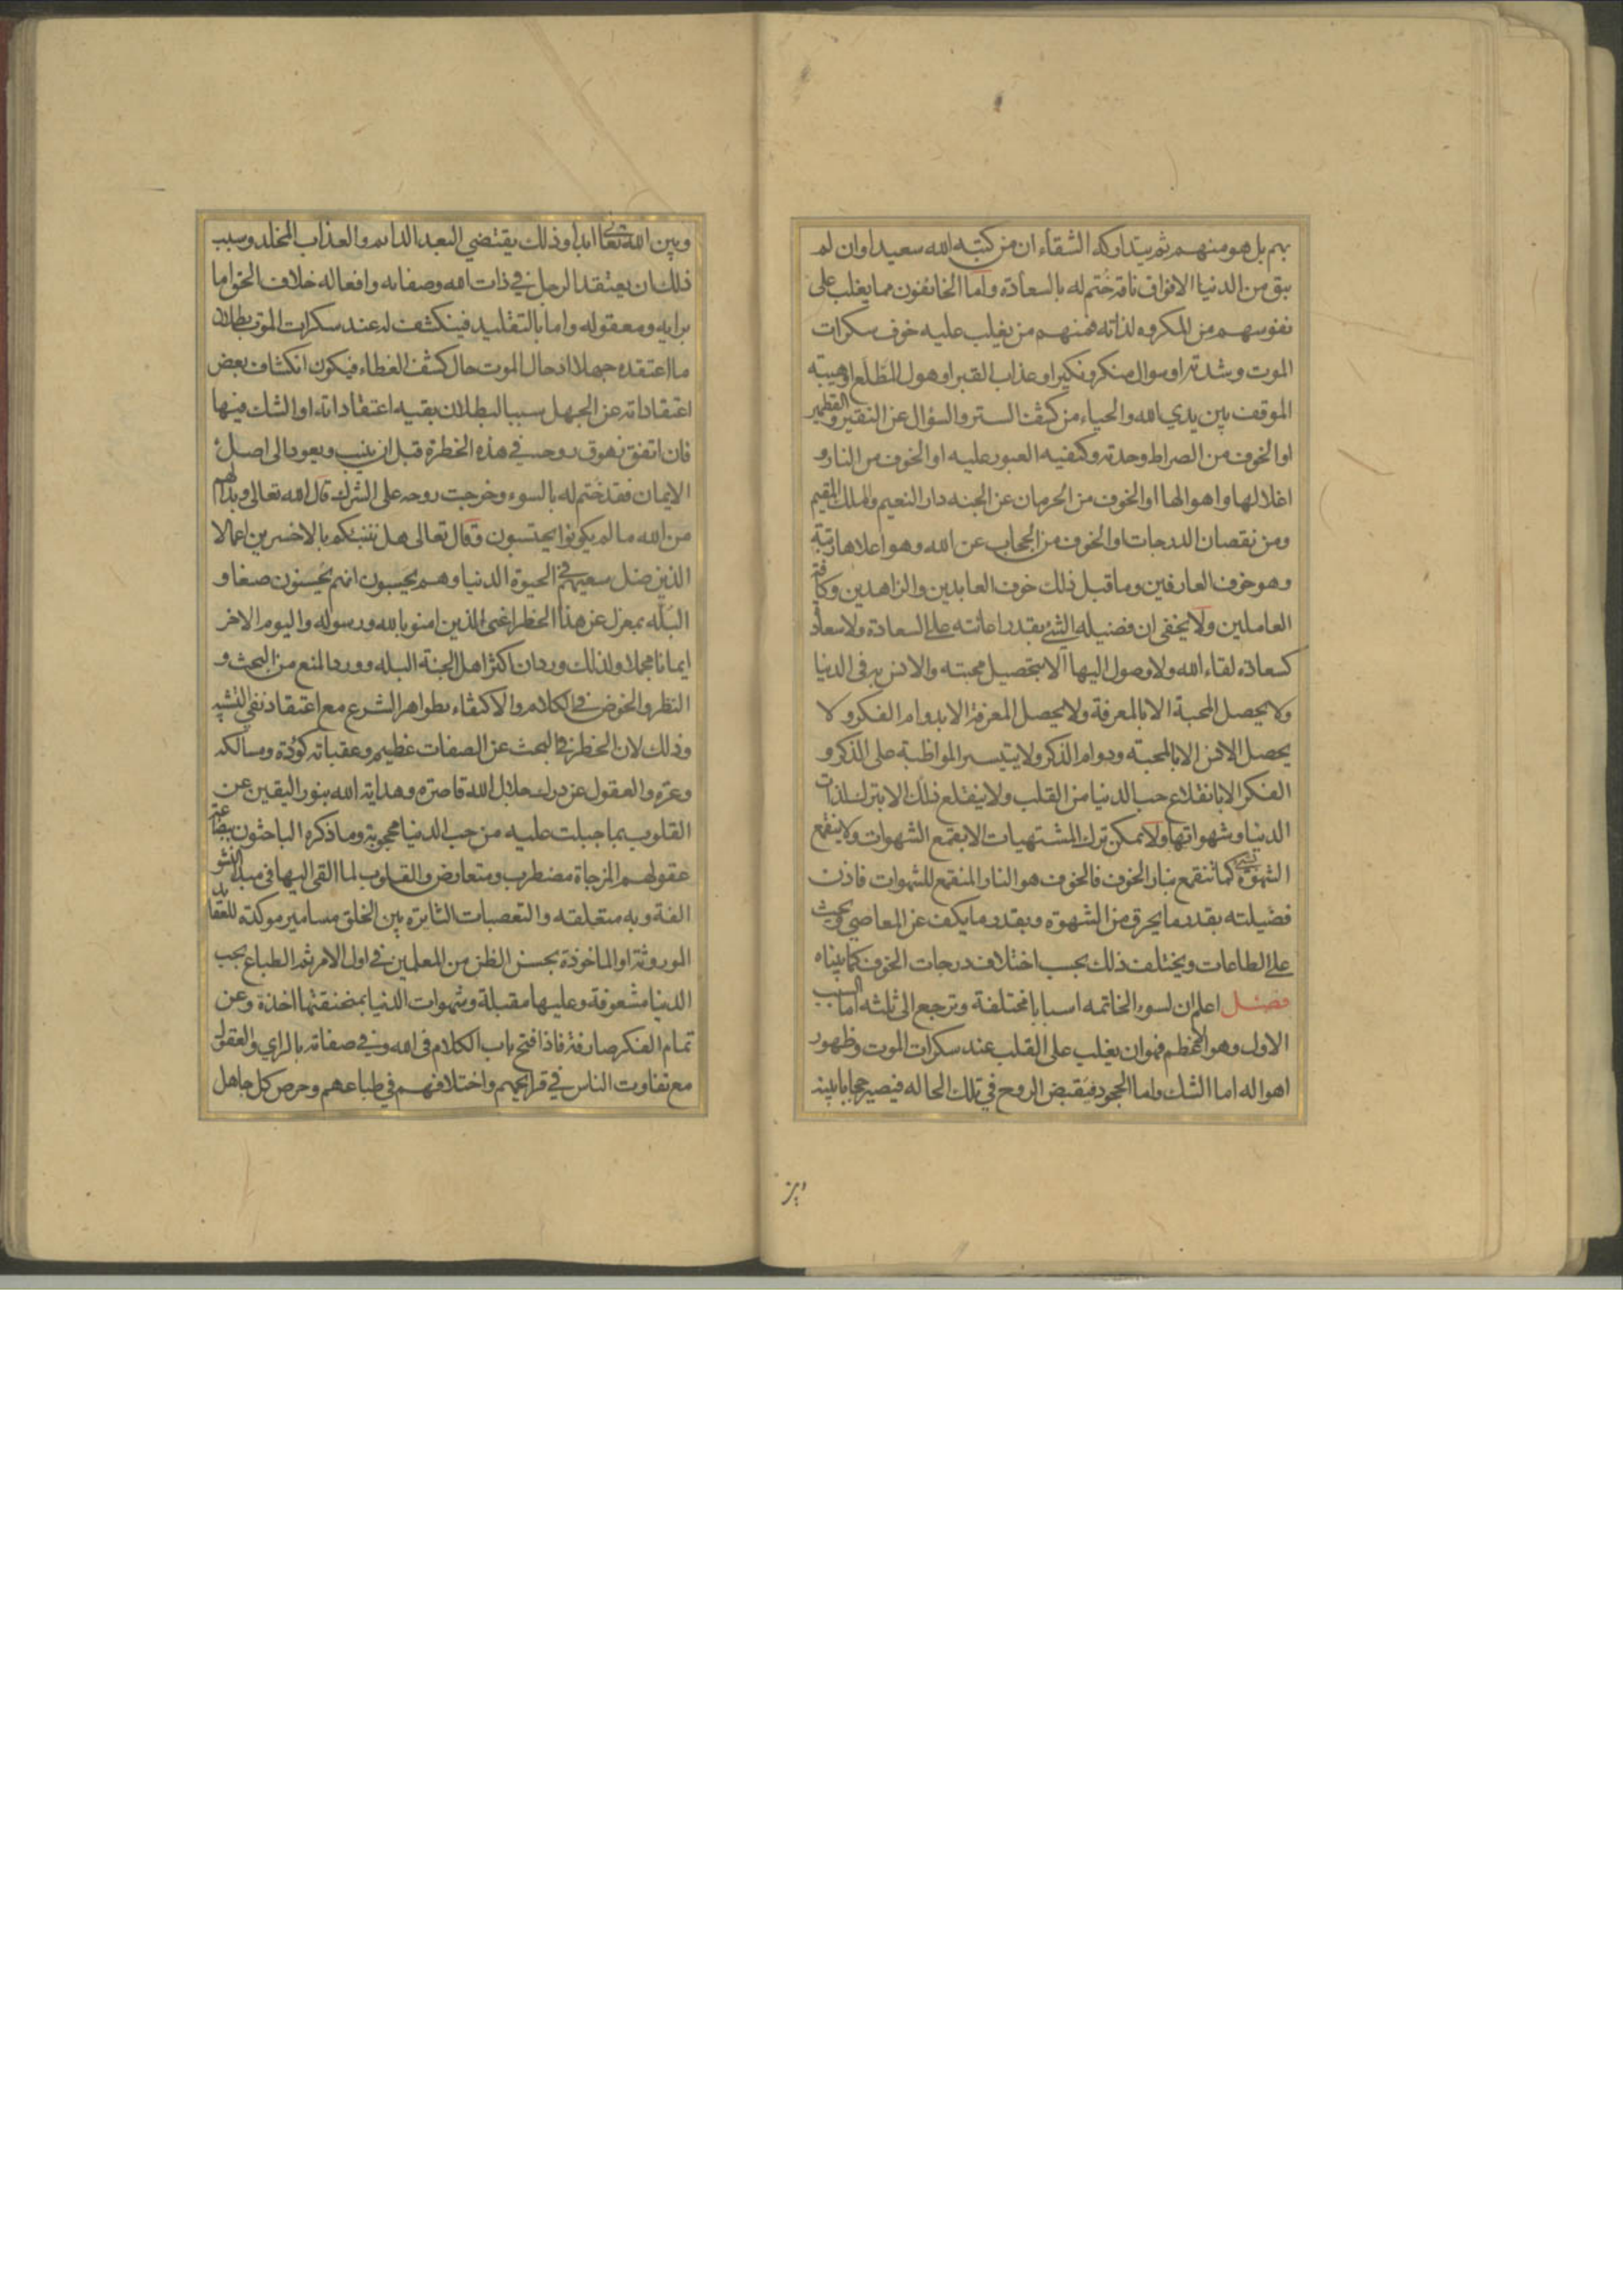 بهم بل هو منهم ثم يتداركه الشقاء ان من كتبه الله سعيدا وان لم
يبق من الدنيا الا فواق ناقة ختم له بالسعادة واما الخايفون مما يغلب على
نفوسهم من المكروه لذاته فمنهم من يغلب عليه خوف سكرات
الموت وشدته او سوال منكر ونكير او عذاب القبر او هول المطلع او هيبة
الموقف بين يدي الله والحياء من كشف الستر والسؤال عن النقير والقطمير
او الخوف من الصراط وحدته وكيفيه العبور عليه او الخوف من النار و
اغلالها واهوالها او الخوف من الحرمان عن الجنه دار النعيم والملك المقيم
ومن نقصان الدرجات والخوف من الحجاب عن الله وهو اعلاها رتبة
وهو خوف العارفين وما قبل ذلك خوف العابدين والزاهدين وكافة
العاملين ولا يخفى ان فضيله الشئ بقدر اعانته على السعادة ولا سعادة
كسعادة لقاء الله ولا وصول اليها الا بتحصيل محبته والانس به فى الدنيا
ولا يحصل المحبة الا بالمعرفة ولا يحصل المعرفة الا بدوام الفكر و لا
يحصل الانس الا بالمحبته ودوام الذكر ولا يتيسر المواظبة على الذكر و
الفكر الا بانقلاع حب الدنيا من القلب ولا ينقلع ذلك الا بترك لذات
الدنيا وشهواتها ولا يمكن ترك المشتهيات الا بقمع الشهوات ولا ينقمع
الشهوة كما تنقمع بنار الخوف فالخوف هو النار المنقمع للشهوات فاذن
فضيلته بقدر ما يحرق من الشهوة وبقدر ما يكف عن المعاصي ويحث
على الطاعات ويختلف ذلك بحسب اختلاف درجات الخوف كما بيناه
فصل اعلم ان لسوء الخاتمه اسبابا مختلفة وترجع الى ثلثه اما السبب
الاول وهو الاعظم فهو ان يغلب على القلب عند سكرات الموت وظهور
اهواله اما الشك واما الجحود فيقبض الروح في تلك الحاله فيصير حجابا بينه
وبين
وبين الله تعالى ابدا وذلك يقتضي البعد الدايم والعذاب المخلد وسبب
ذلك ان يعتقد الرجل في ذات الله وصفاته وافعاله خلاف الحق اما
برايه ومعقوله واما بالتقليد فينكشف له عند سكرات الموت بطلان
ما اعتقده جهلا اذ حال الموت حال كشف الغطاء فيكون انكشاف بعض
اعتقاداته عن الجهل سببا لبطلان بقيه اعتقاداته او الشك فيها
فان اتفق زهوق روحه في هذه الخطرة قبل ان ينيب ويعود الى اصل
الايمان فقد ختم له بالسوء وخرجت روحه على الشرك قال الله تعالى وبدا لهم
من الله ما لم يكونوا يحتسبون وقال تعالى هل ننبئكم بالاخسرين اعمالا
الذين ضل سعيهم في الحيوة الدنيا وهم يحسبون انهم يحسنون صنعا و
البله بمعزل عن هذا الخطر اعنى الذين امنوا بالله ورسوله واليوم الاخر
ايمانا مجملا ولذلك ورد ان اكثر اهل الجنة البله وورد المنع من البحث و
النظر والخوض في الكلام والاكتفاء بظواهر الشرع مع اعتقاد نفي التشبيه
وذلك لان الخطر في البحث عن الصفات عظيم وعقباته كؤدة ومسالكه
وعرة والعقول عن درك جلال الله قاصرة وهداية الله بنور اليقين عن
القلوب بما جبلت عليه من حب الدنيا محجوبة وما ذكره الباحثون ببضاعة
عقولهم المزجاة مضطرب ومتعارض والقلوب لما القى اليها فى مبدا النشو
الفة وبه متعلقه والتعصبات الثايرة بين الخلق مسامير موكدة للعقايد
الموروثة او الماخوذة بحسن الظن من المعلمين في اول الامر ثم الطباع بحب
الدنيا مشعوفة وعليها مقبلة وشهوات الدنيا بمخنقتها اخذة وعن
تمام الفكر صارفة فاذا فتح باب الكلام فى الله وفي صفاته بالراي والعقل
مع تفاوت الناس في قرايحهم واختلافهم في طباعهم وحرص كل جاهل